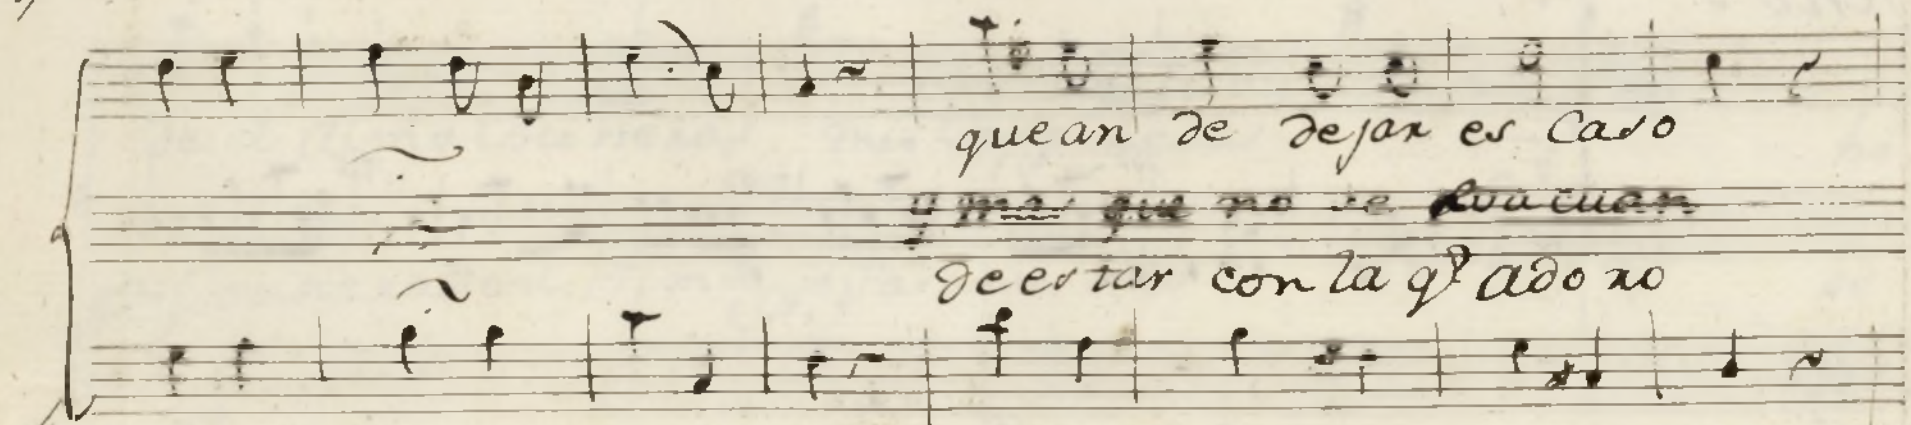 quean de dejar es Caso
y mas que no se
deestar con la q.ᵉ adoro